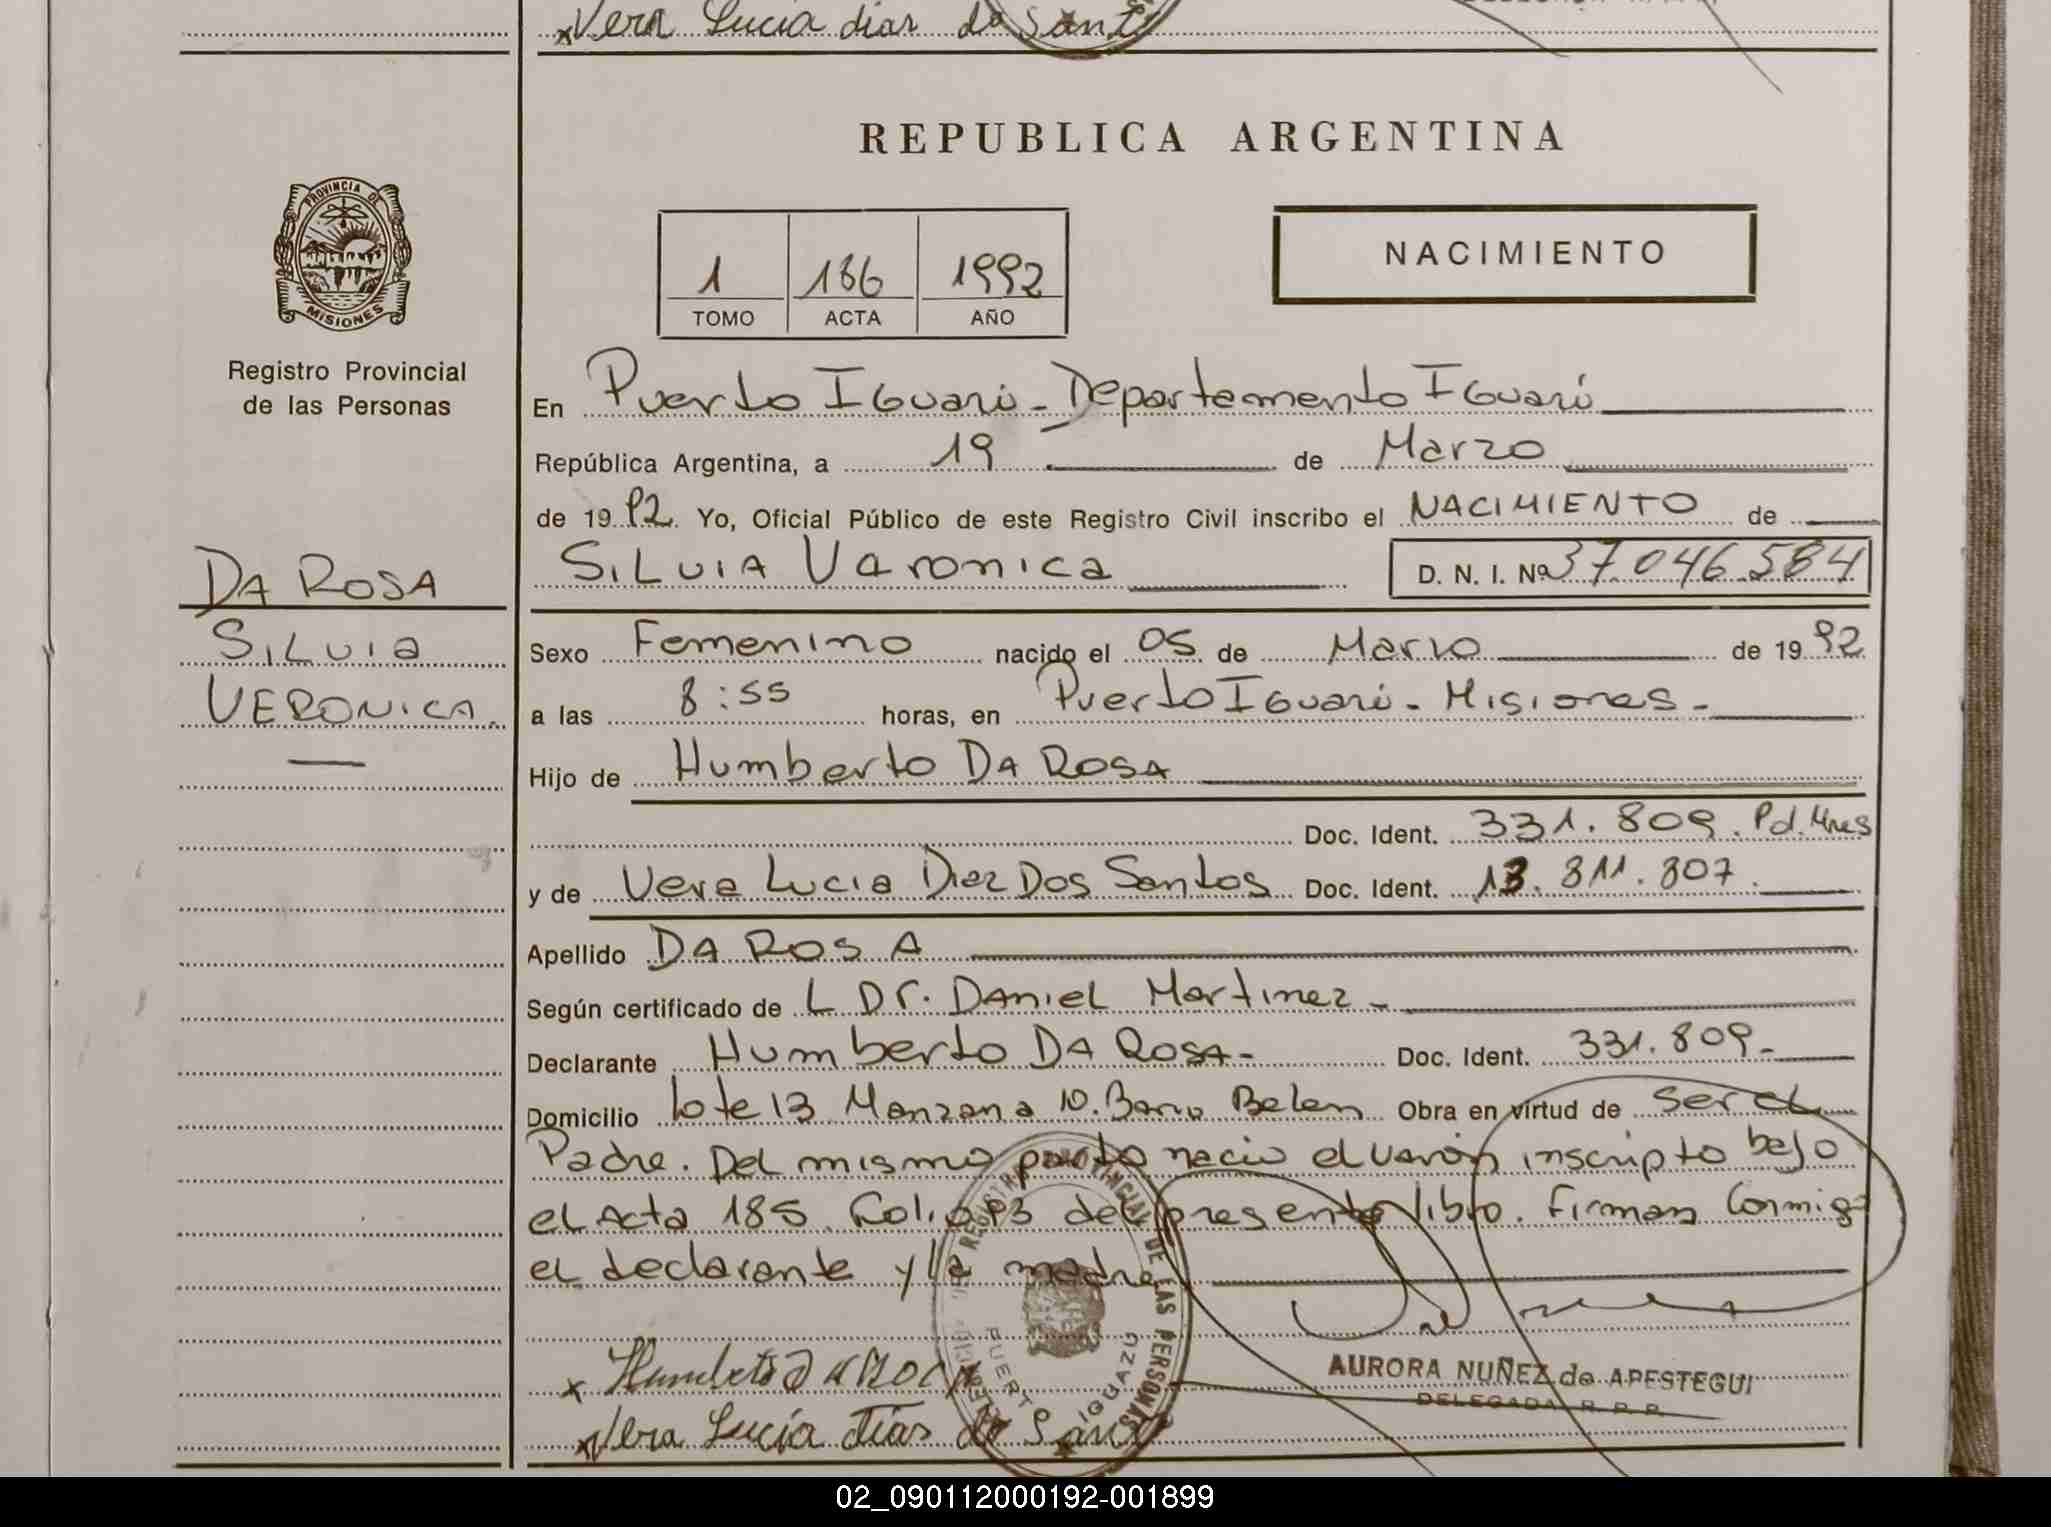 Vera Lucia dias do Sant
REPUBLICA ARGENTINA
PROVINCIA DE
MISIONES
Registro Provincial
de las Personas
1 186 1992
TOMO ACTA AÑO
NACIMIENTO
En Puerto Iguazú - Departamento Iguazú
República Argentina, a 19 de Marzo
de 1992. Yo, Oficial Público de este Registro Civil inscribo el NACIMIENTO de
SiLvia Veronica D. N. I. Nº 37.046.584
DA ROSA
SiLvia
VERONICA.
Sexo Femenino nacido el 05 de Marzo de 1992
a las 8:55 horas, en Puerto Iguazú - Misiones -
Hijo de Humberto DA ROSA
Doc. Ident. 331.809. Pd. Mnes
y de Vera Lucia Diaz Dos Santos Doc. Ident. 13.811.807.
Apellido DA ROSA
Según certificado de L Dr. Daniel Martinez -
Declarante Humberto DA Rosa - Doc. Ident. 331.809 -
Domicilio Lote 13 Manzana 10. Barrio Belen Obra en virtud de ser el
Padre. Del mismo parto nacio el varón inscripto bajo
el Acta 185. Folio 93 del presente libro. Firman Conmigo
el declarante y la madre
x Humberto
x Vera Lucia dias do Sant
REGISTRO PROVINCIAL DE LAS PERSONAS
PUERTO IGUAZU
AURORA NUÑEZ de APESTEGUI
DELEGADA R. P. P.
02_090112000192-001899